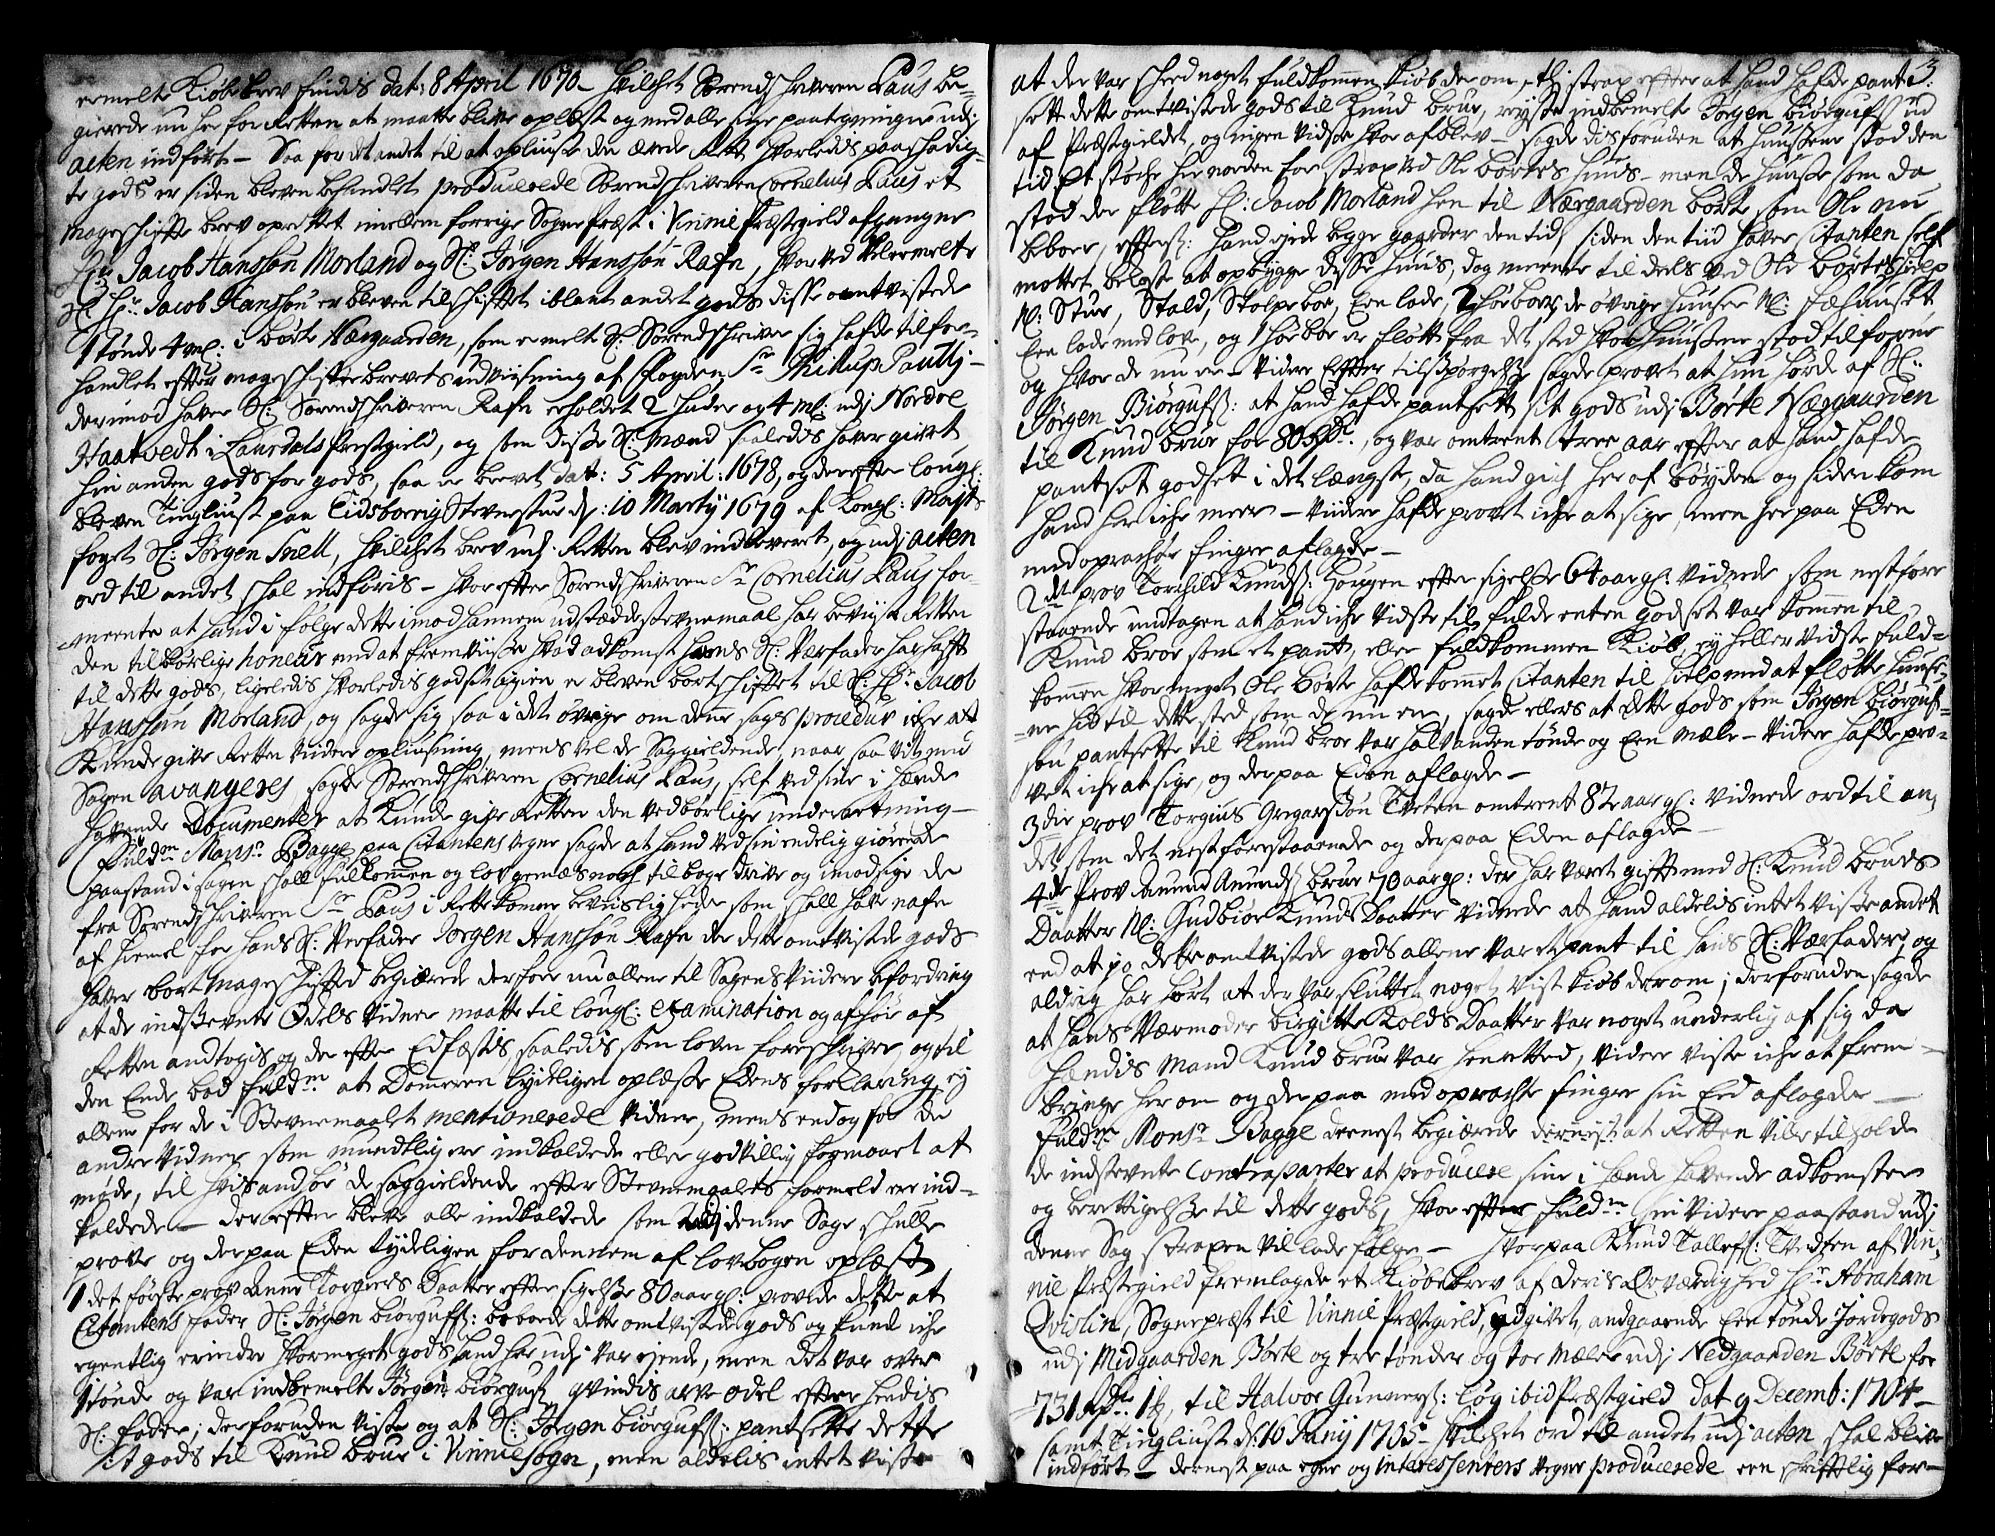 ermelte Kiøbebrev findis dat: 8 April 1670 – hvilchet Sorendschriveren Paus be-
gierede nu her for Retten at maatte blive oplæst og med alle sine paategninger udj
acten indført – Saa for det andet til at opliuse den ærede Ret hvorledis paaschadig-
te gods er siden bleven behandlet producerede Sorendschriveren Cornelius Paus et
mageschifte brev oprettet imellem forrige Sognepræst i Vinnie Præstegield afgangne
Hr. Jacob Hanssøn Morland og Sl: Jørgen Hanssøn Rafn, hvorved velermelte
Sl. Hr. Jacob Hanssøn er bleven tilschiftet iblant andet gods disse omtvistede
1 tønde 4 mel: i Børte Nærgaarden, som ermelte Sl: Sorendschriver sig hafde tilfor-
handlet efter mageschiftebrevets udviisning af Fogden Sr Philup Pauttj –
derimod haver Sl: Sorendschriveren Rafn erholdet 2 huder og 4 mel: udj Nordre
Haatvedt i Laurdals Prestegield, og som disse Sl: Mænd saaledis haver givet
hin anden gods for gods, saa er brevet dat: 5 April: 1678, og derefter lougl:
bleven Tingliust paa Tidsborrig Stevnestue d: 10 Martij 1679 af Kongl: Mayts
foget Sl: Jørgen Snell, hvilchet brev udj Retten blev indleveret, og udj acten
ord til andet schal indføris – hvorefter Sorendschriveren Sr Cornelius Paus for-
meente at hand i følge dette imod hannem udstædde stevnemaal har beviist Retten
den tilbørlige honeur med at fremviise hvad adkomst hans Sl: Værfader har hafft
til dette gods, ligeledis hvorledis godset igien er bleven bortschiftet til Sl: Hr. Jacob
Hanssøn Morland, og sagde sig saa i det øvrige om denne sags procedur iche at
kunde give Retten videre opliusning, mens vel de Saggieldende, naar saa vit med
Sagen avangeres, sagde Sorendschriveren Cornelius Paus, self ved sine i hænde
hafvende Documenter at kunde give Retten den vedbørlige underretning –
Fuldm Monsr Bagge paa Citantens vegne sagde at hand ved sin endelig giørende
paastand i sagen schall fuldkommen og lovgemæs noch tilbage drive og imodsige de
fra Sorendschriveren Sr Paus i Rette komne beviisligheder som schall have nafn
af hiemel for hans Sl: Verfader Jørgen Hanssøn Rafn der dette omtvistede gods
haver bort mageschifted begiærede derfore nu allene til Sagens videre befordring
at de indstevnte Odels vidner maatte til lougl: examination og afhør af
Retten andtagis og der efter Edfæstis saaledis som loven foreschriver, og til
den Ende bad fuldm at Domeren tydeligen oplæste Edens forklaring, ej
allene for de i Stevnemaalet mentionerede vidner, mens endog for de
andre vidner som mundtlig ere indkaldede eller godvillig formaaet at
møde, til hvis andhør de saggieldende efter Stevnemaalets formeld ere ind-
kaldede – der efter bleve alle indkaldede som udj denne Sag schulle
prove og derpaa Eden tydeligen for dennem af lovbogen oplæst,
1 det første prov Anne Torgiers Daatter efter sigelse 80 aar gl: provede dette at
Citantens fader Sl: Jørgen Biørgufs: beboede dette omtvistede gods og kand iche
egentlig erindre hvor meget gods hand her udj var ejende, men det var over
1 tønde og var indbemelte Jørgen Biørgufs: qvindis arve odel efter hendis
Sl: fader; derforuden viste og at Sl: Jørgen Biørgufs: pantsette dette
sit gods til Knud Brue i Vinnie sogn, men aldelis intet viste
3.
at der var scheed noget fuldkommen kiøb derom, thi strax efter at hand hafde pant-
sett dette omtvistede gods til Knud Brue, reyste indbemelte Jørgen Biørgufs: ud
af Præstegieldet, og ingen vidste hvor af blev – sagde disforuden at huusene stod den
tid Et støche her norden for strax ved Ole Børtes huus – men de huuse som da
stod der fløtte Hr: Jacob Morland hen til Nærgaarden Børte, som Ole nu
beboer, eftersom: hand ejede begge gaarder den tid, siden den tiid haver Citanten self
mottet bekoste at opbygge disse huus, dog meente til deels ved Ole Børtes hielp
N: Stue, Stald, Stolpeboe, Een lade, 2 høeboer, de øvrige huuse N: fæhuuset
Een lade med love, og 1 høeboe er fløtt fra det sted hvor huusene stod tilforne
og hvor de nu ere – videre Efter tilspørgelse sagde provet at hun hørde af Sl:
Jørgen Biørgufs: at hand hafde pantsett sit gods udj Børte Nærgaarden
til Knud Brue for 80 Rdr., og var omtrent tree aar efter at hand hafde
pantset godset i det længste, da hand gich her af bøyden og siden kom
hand her iche meer – videre hafde provet iche at sige, men herpaa Eden
med oprachte finger aflagde –
2det prov Torchild Knuds: Houggen efter sigelse 64 aar gl: vidnede som nestføre
staaende undtagen at hand iche vidste til fulde enten godset var kommen til
Knud Broe som et pant, eller fuldkommen kiøb, ej heller vidste fuld-
kommen hvor meget Ole Børte hafde kommet Citanten til hielp med at fløtte huuse-
ne hid til dette sted som de nu ere, sagde ellers at dette gods som Jørgen Biørguf-
søn pantsette til Knud Broe var halfanden tønde og Een Mæle – videre hafde pro-
vet iche at sige, og derpaa Eden aflagde –
3die prov Torgius Gregarssøn Tveten omtrent 82 aar gl: vidnede ord til an-
det som det nestforestaaende og derpaa Eden aflagde –
4de Prov Amund Amunds: Brue 70 aar gl: der har været gift med Sl: Knud Brues
Daatter N: Gudbiør Knuds Daatter vidnede at hand aldelis intet viste andet
end at jo dette omtvistede gods allene var et pant til hans Sl: Værfader, og
aldrig har hørt at der var sluttet noget vist kiøb derom; derforuden sagde
at hans Værmoder Birgitte Kolds Daatter var noget underlig af sig da
hendis Mand Knud Brue var henretted, videre viste iche at frem-
bringe her om og derpaa med oprachte finger sin Eed aflagde –
Fuldm Monsr Bagge dernest begiærede dernest at Retten ville tilholde
de indstevnte Contraparter at producere sine i hænde havende adkomster
og berettigelse til dette gods, hvorefter fuldm sin videre paastand udj
denne Sag strax en vil lade følge – hvorpaa Knud Tallefs: Tvedten af Vin-
nie Præstegield fremlagde et Kiøbebrev af Deris Ærværdighed Hr. Abraham
Qvislin, Sognepræst til Vinnie Præstegield, udgivet, andgaaende Een tønde Jordegods
udj Midgaarden Børte og tre tønder og toe Mæler udj Nedgaarden Børte for
731 Rdr 1 ß, til Halvor Gunners: Løg ibid Præstegield dat 9 Decemb: 1704 –
samt Tingliust d: 16 Junij 1705 – hvilchet ord til andet udj acten schal blive
indført – dernest paa egne og interessenters vegne producerede een schriftlig for-